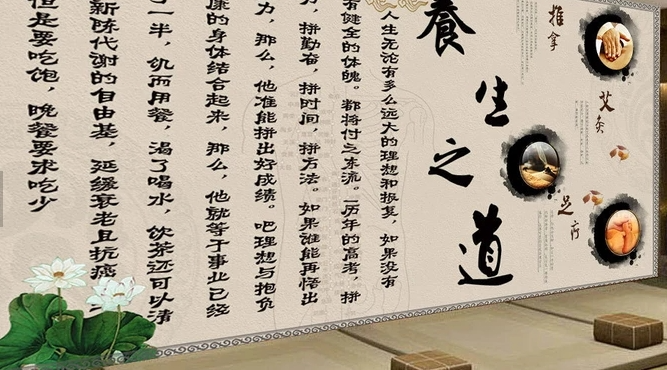 推拿
艾灸
足疗
養生之道
人生无论有多么远大的理想和报复，如果没有
有健全的体魄。都将付之东流。历年的高考，拼
力，拼勤奋，拼时间，拼方法。如果谁能再悟出
力，那么，他准能拼出好成绩。吧理想与抱负
康的身体结合起来，那么，他就等于事业已经
了一半，饥而用餐，渴了喝水，饮茶还可以清
新陈代谢的自由基，延缓衰老且抗癌
但是要吃饱，晚餐要求吃少